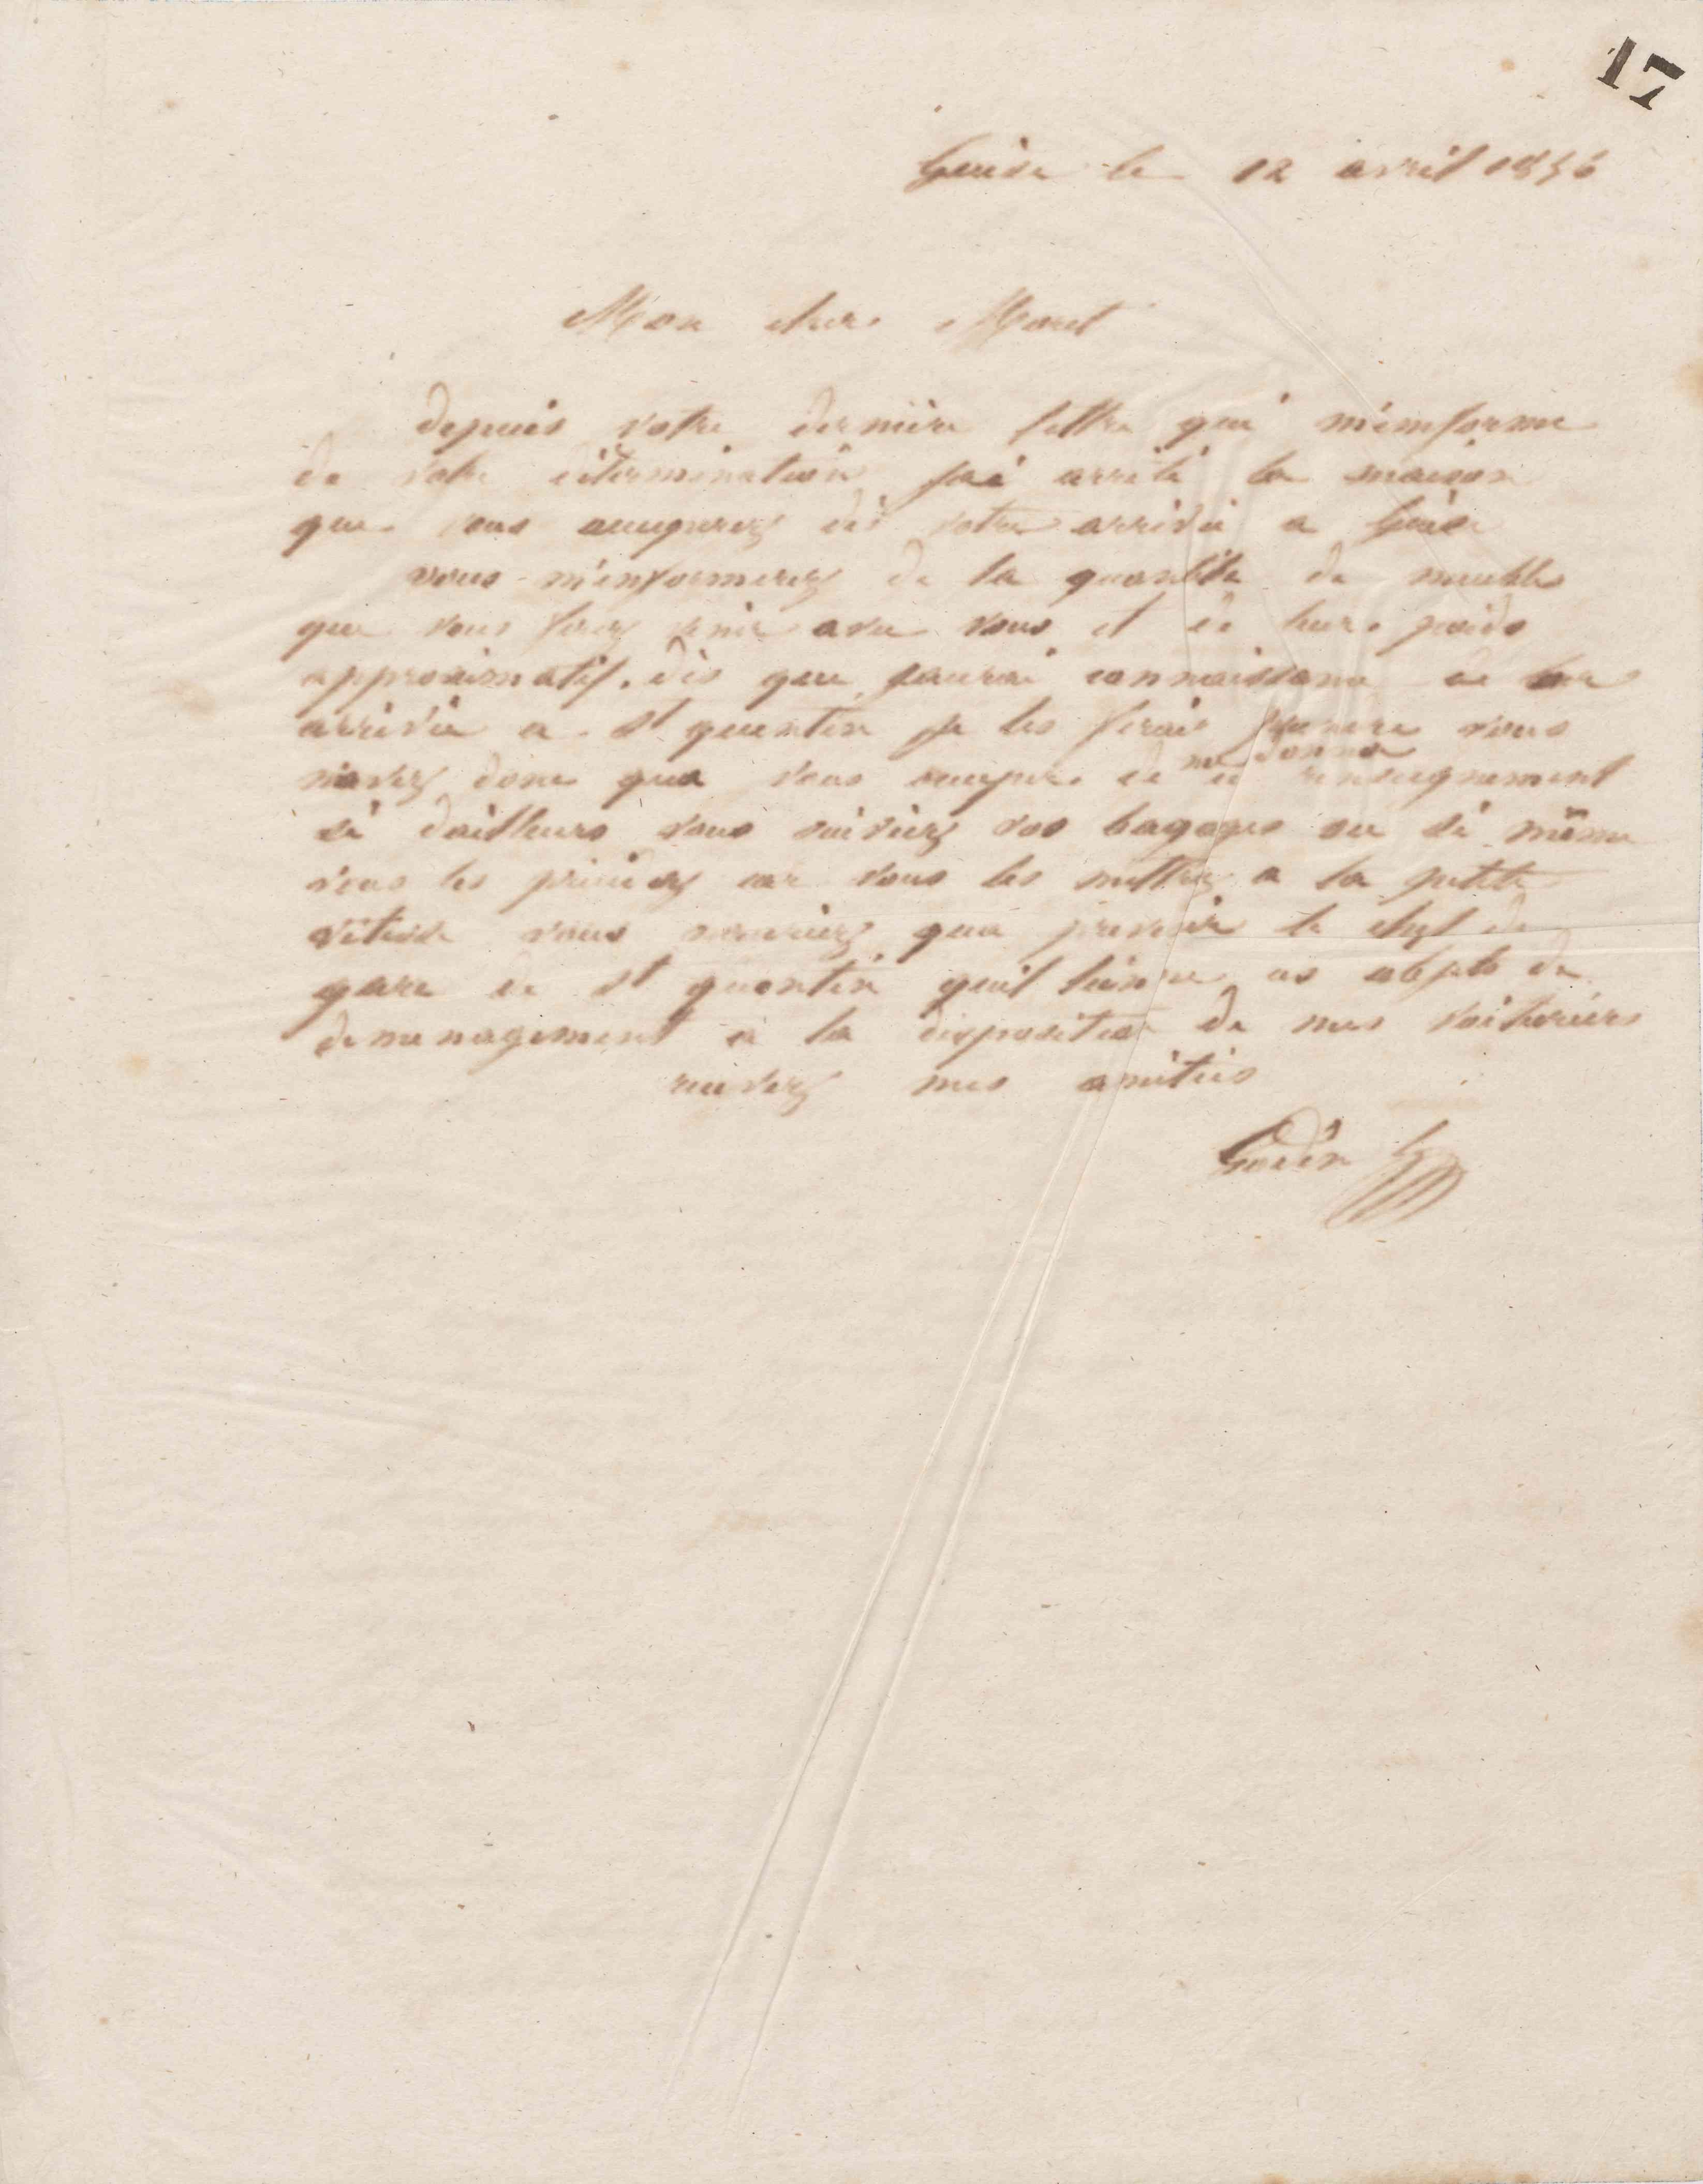 17
Guise le 12 avril 1856
Mon cher Moret
depuis votre dernière lettre qui m'informe
de votre détermination j'ai arrêté la maison
que vous occuperez dès votre arrivée a Guise
vous m'informerez de la quantité de meubles
que vous ferez venir avec vous et de leur poids
approximatif. dès que j'aurai connaissance de leur
arrivée a St quentin je les ferais prendre vous
n'avez donc qua vous occuper de me donner ce renseignement
si d'ailleurs vous suiviez vos bagages ou si même
vous les car vous les mettrez a la petite
vitesse vous n'auriez qua prévenir le chef de
gare de St quentin quil tienne vos objets de
demenagement à la disposition de mes voituriers
recevez mes amitiés
Godin